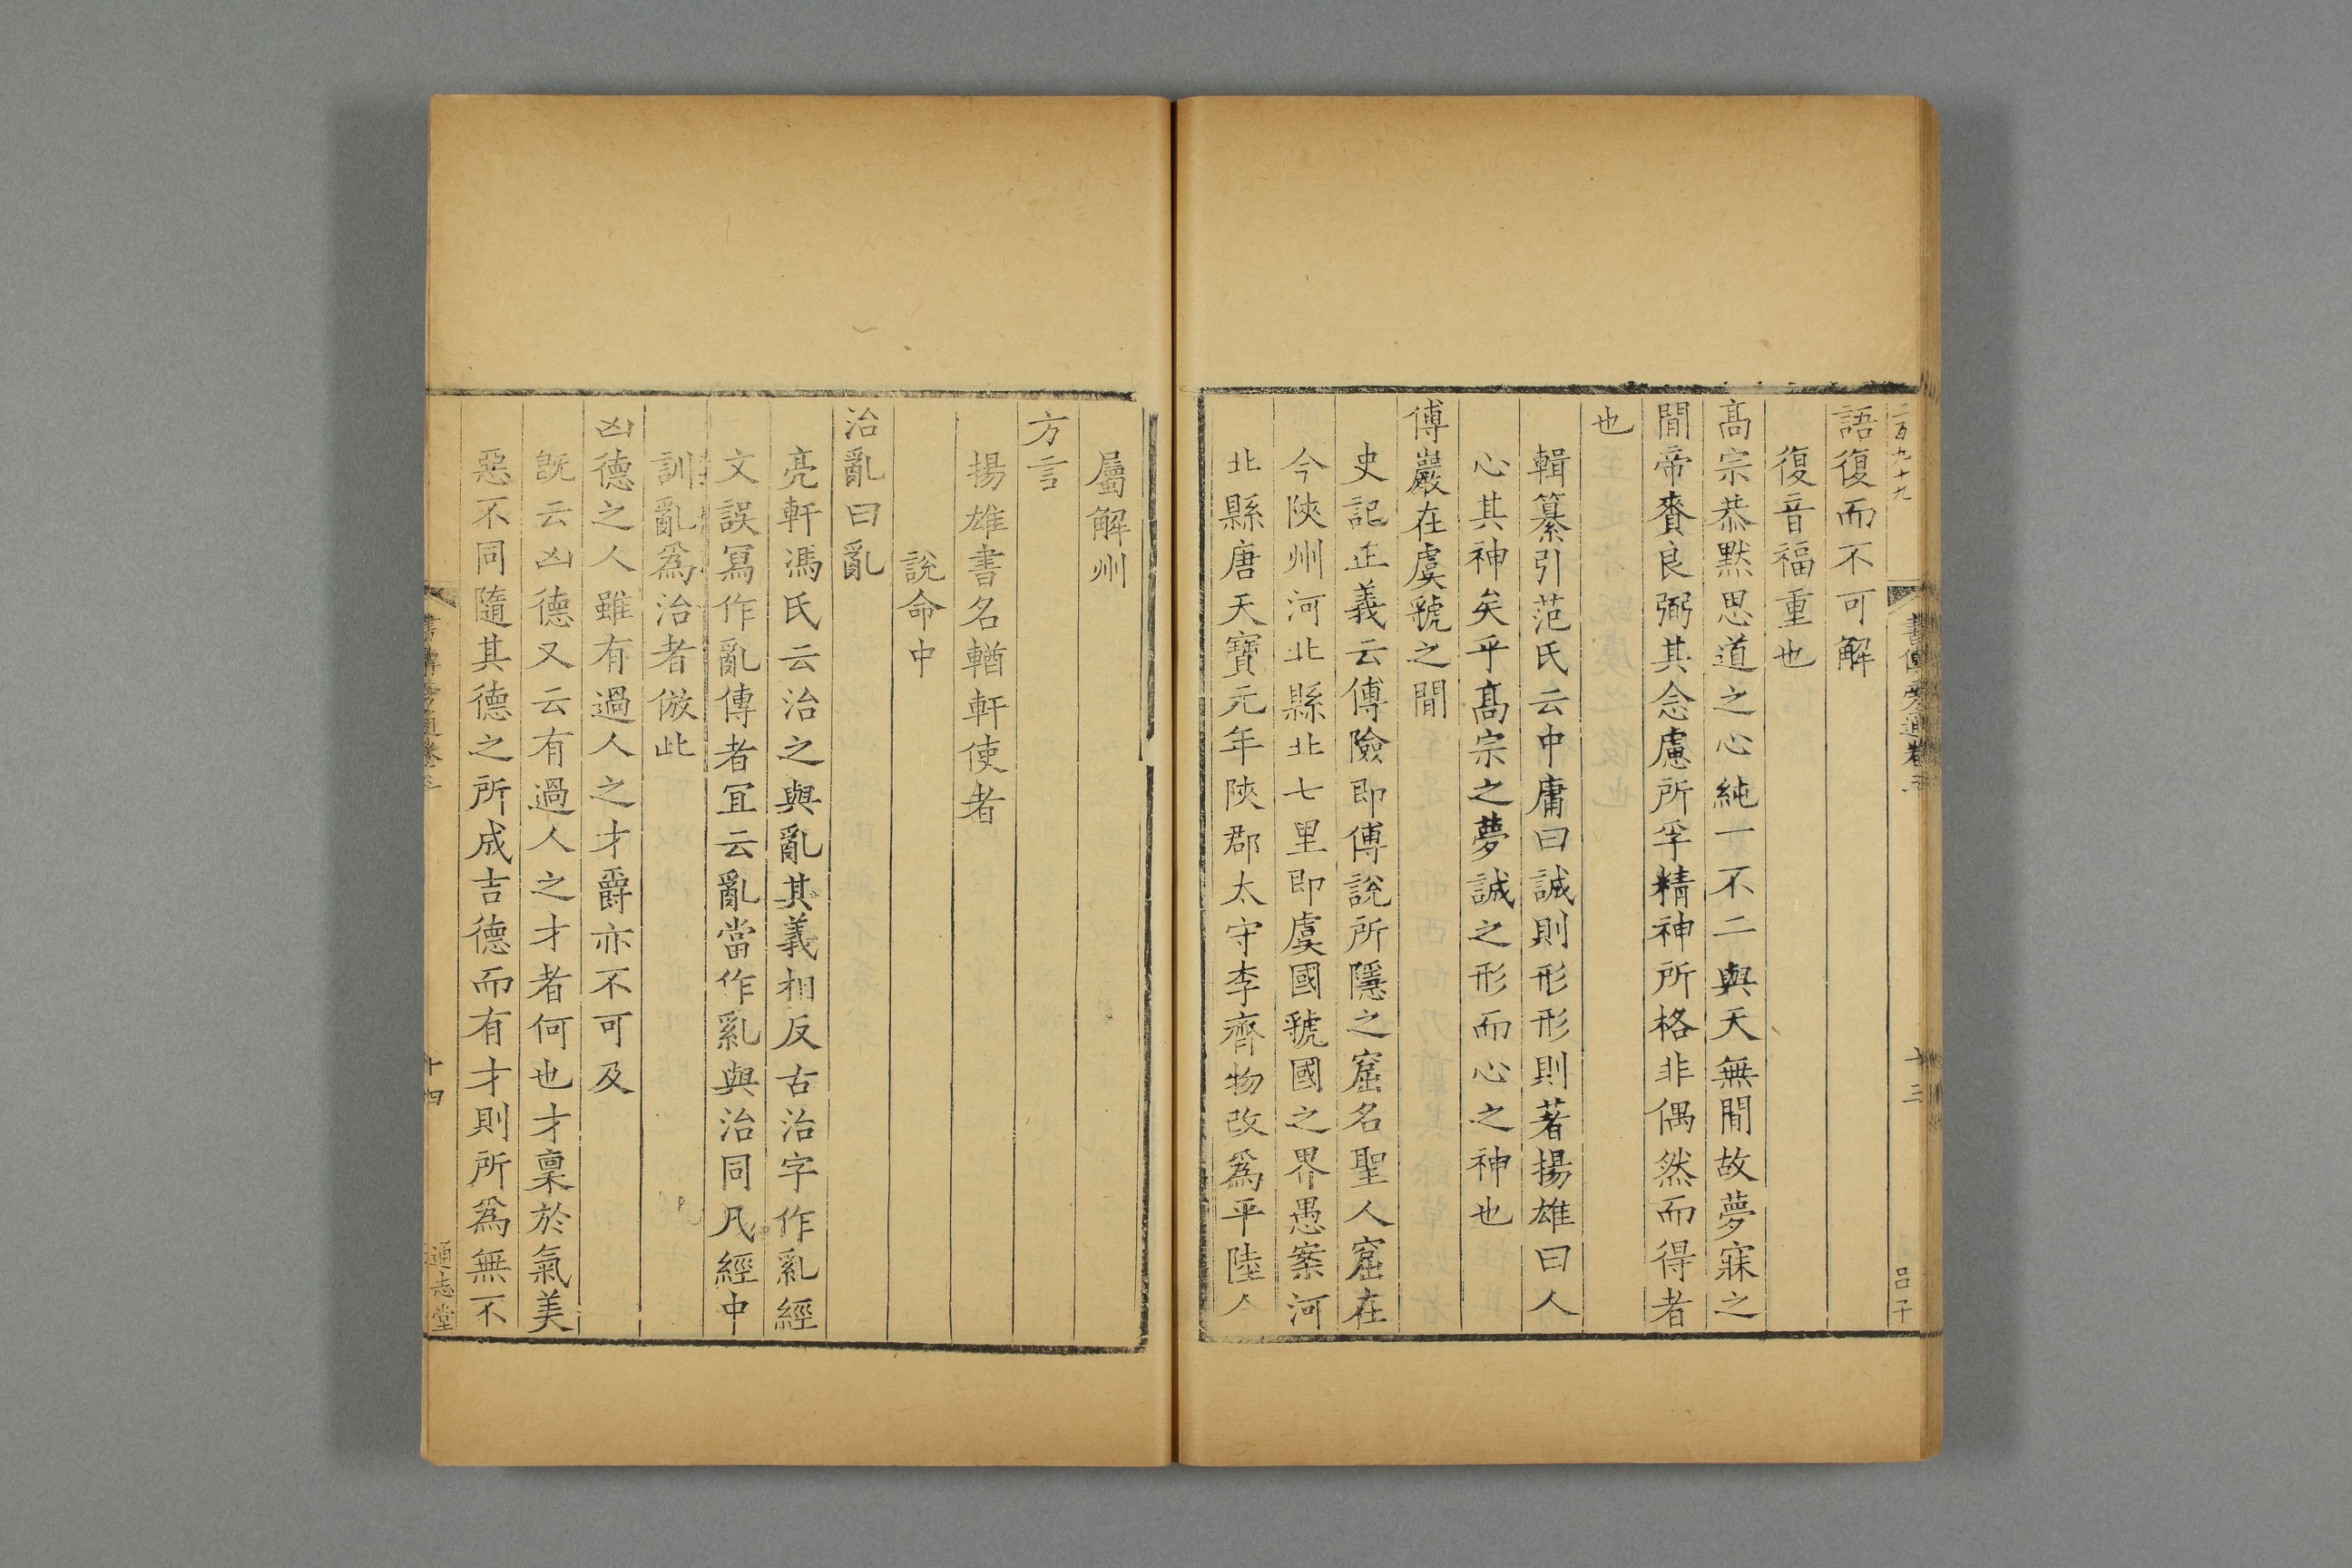 二百九十九
書傳旁通卷三
十三
呂子
語復而不可解
復音福重也
髙宗恭黙思道之心純一不二與天無間故夢寐之
間帝賚良弼其念慮所孚精神所格非偶然而得者
也
輯纂引范氏云中庸曰誠則形形則著揚雄曰人
心其神矣乎髙宗之夢誠之形而心之神也
傅巖在虞虢之間
史記正義云傅險即傅說所隱之窟名聖人窟在
今陜州河北縣北七里即虞國虢國之界愚案河
北縣唐天寶元年陜郡太守李齊物改爲平陸人
屬解州
方言
揚雄書名輶軒使者
說命中
治亂曰亂
亮軒馮氏云治之與亂其義相反古治字作乿經
文誤冩作亂傳者宜云亂當作乿與治同凡經中
訓亂爲治者倣此
凶德之人雖有過人之才爵亦不可及
旣云凶德又云有過人之才者何也才稟於氣美
惡不同隨其德之所成吉德而有才則所爲無不
十四
通志堂